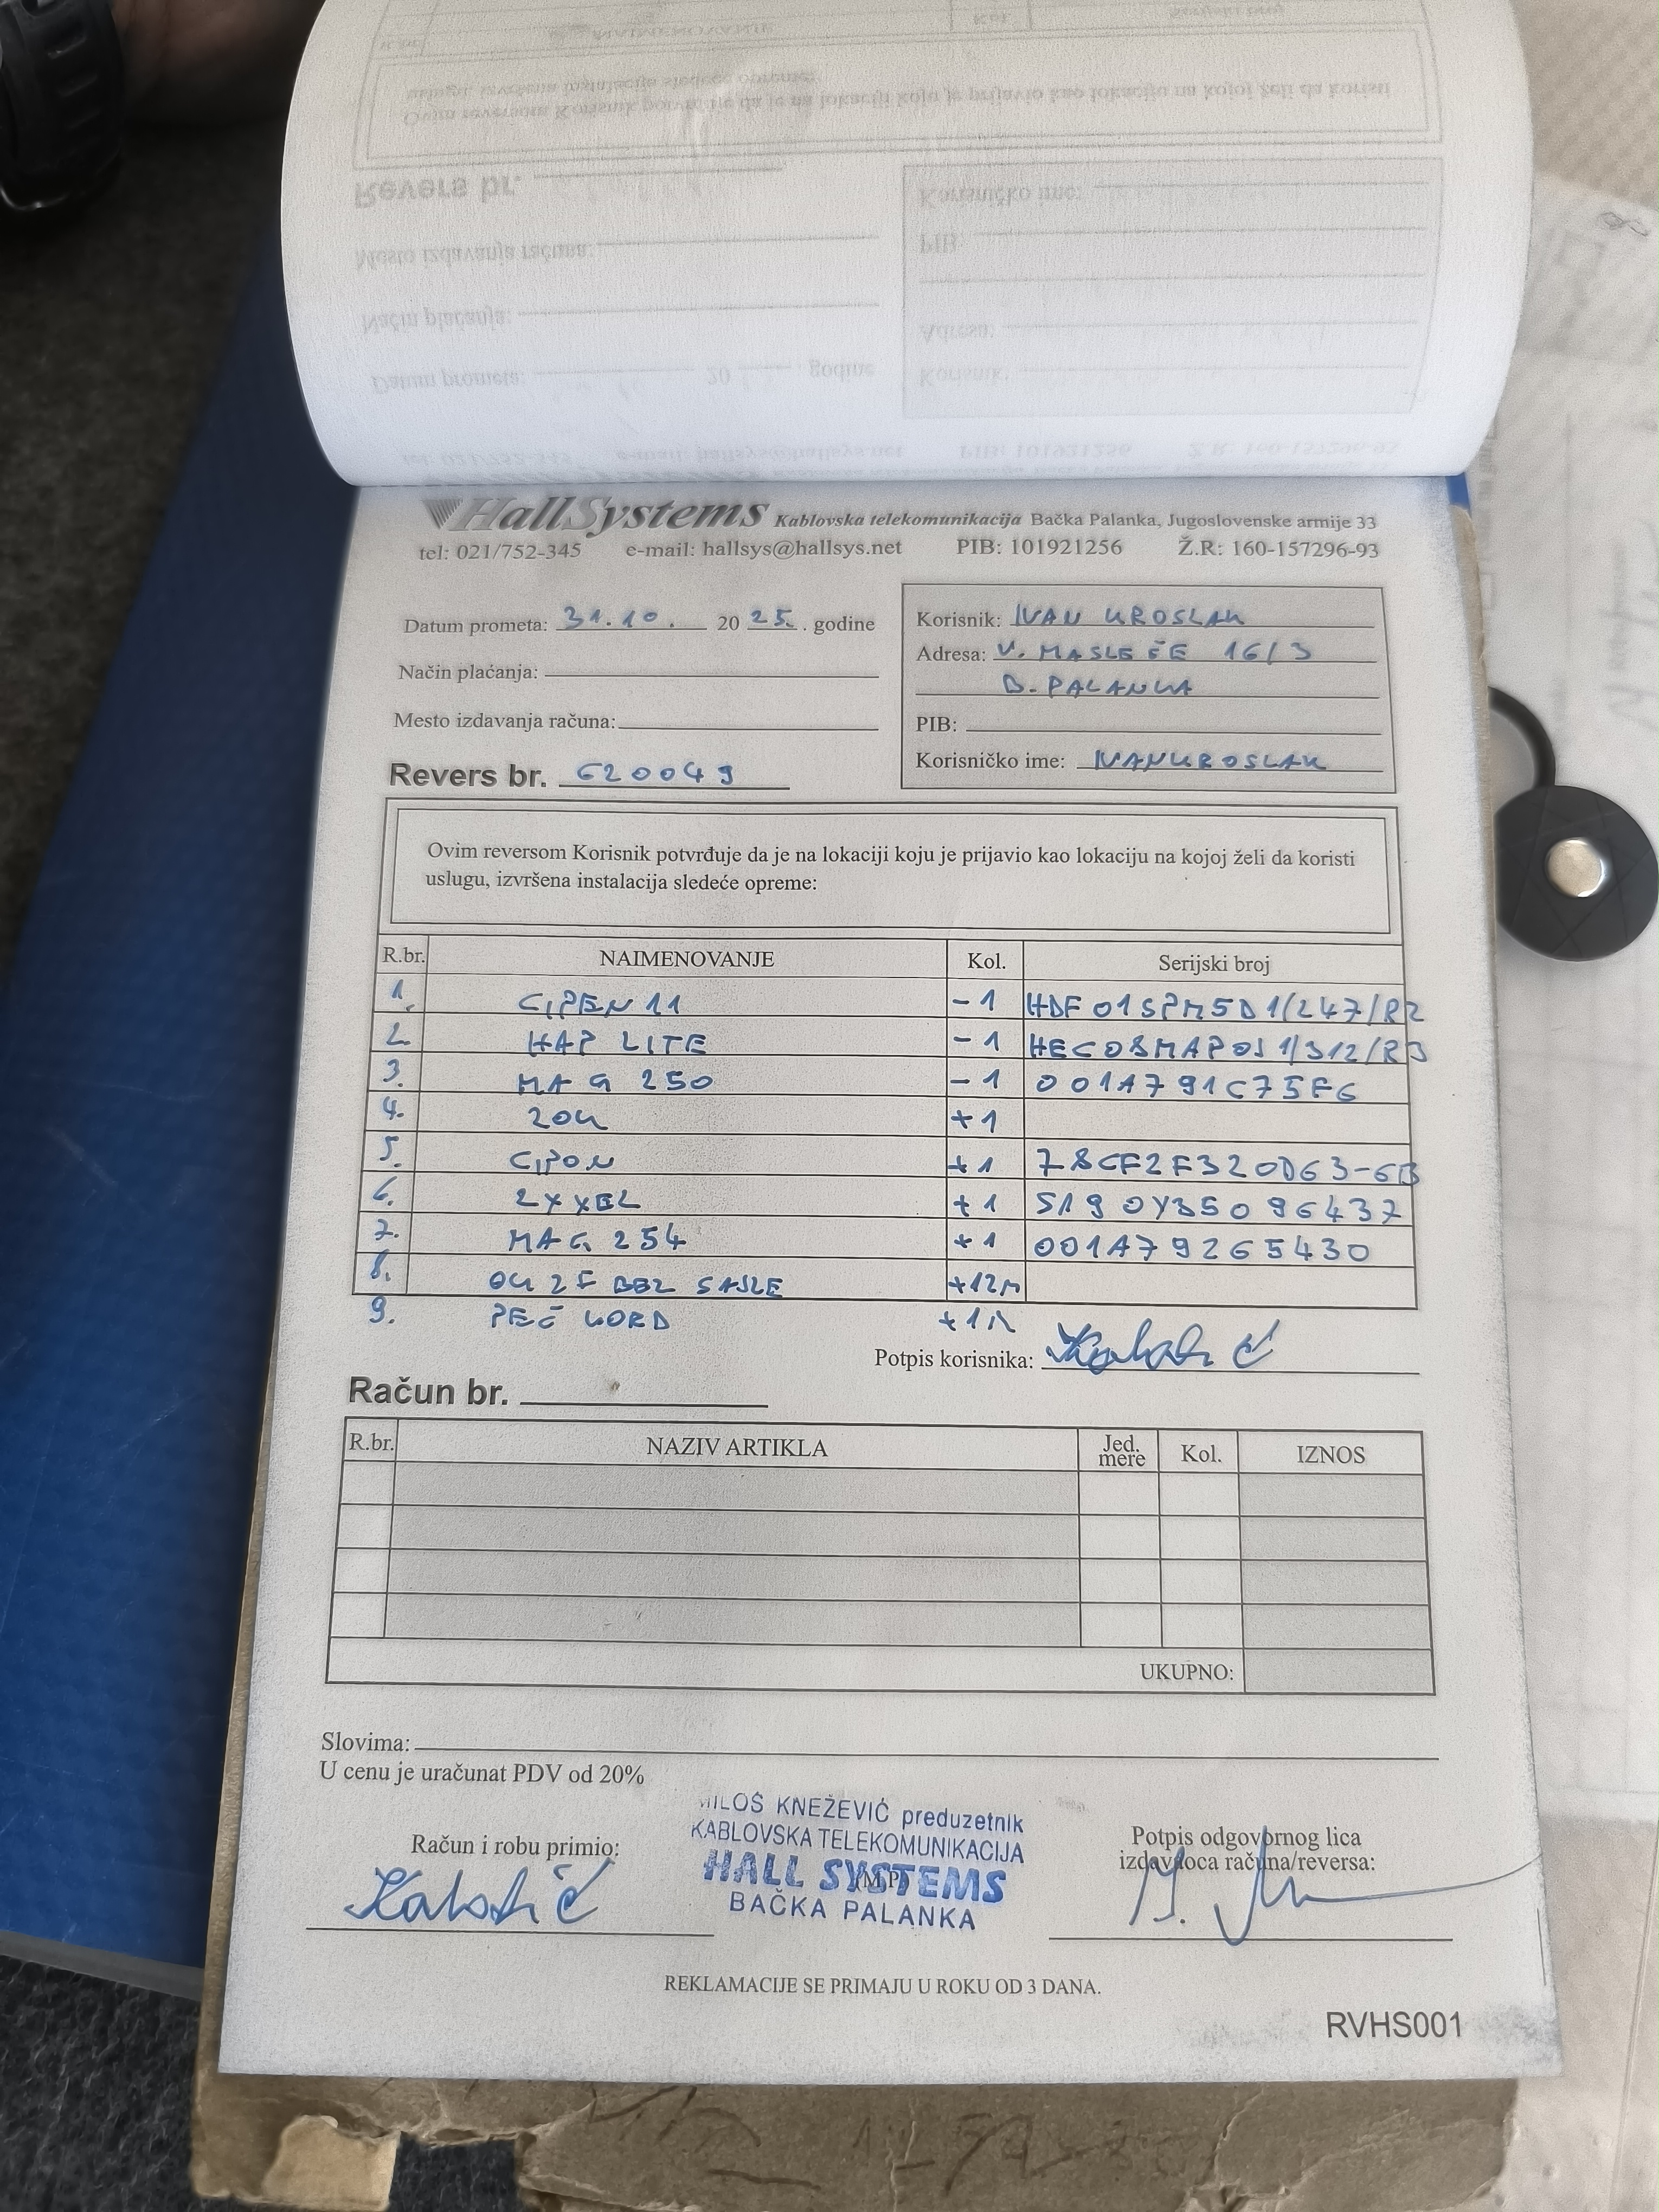 HallSystems Kablovska telekomunikacija Bačka Palanka, Jugoslovenske armije 33
tel: 021/752-345 e-mail: hallsys@hallsys.net PIB: 101921256 Ž.R: 160-157296-93
Datum prometa: 31.10. 2025. godine
Način plaćanja:
Mesto izdavanja računa:
Revers br. 620049
Korisnik: IVAN KROSLAK
Adresa: V. MASLEŠE 16/3
B. PALANKA
PIB:
Korisničko ime: IVANKROSLAK
Ovim reversom Korisnik potvrđuje da je na lokaciji koju je prijavio kao lokaciju na kojoj želi da koristi
uslugu, izvršena instalacija sledeće opreme:
R.br. NAIMENOVANJE Kol. Serijski broj
1. GPEN 11 -1 HDF01SPM5D1/247/R2
2. HAP LITE -1 HEC08MAP0J1/312/R3
3. MAG 250 -1 001A791C75F6
4. ZOK +1
5. GPON +1 78CF2F320D63-6B
6. ZYXEL +1 S190Y35096437
7. MAG 254 +1 001A79265430
8. OK 2F BEZ SAJLE +12M
9. +1
Potpis korisnika:
Račun br.
R.br. NAZIV ARTIKLA Jed. mere Kol. IZNOS
UKUPNO:
Slovima:
U cenu je uračunat PDV od 20%
Račun i robu primio:
MILOŠ KNEŽEVIĆ preduzetnik
KABLOVSKA TELEKOMUNIKACIJA
HALL SYSTEMS
(M.P.)
BAČKA PALANKA
Potpis odgovornog lica
izdavaoca računa/reversa:
REKLAMACIJE SE PRIMAJU U ROKU OD 3 DANA.
RVHS001